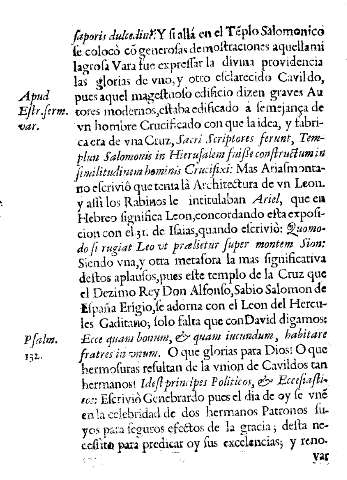 saporis dulcedine. Y si allà en el Tēplo Salomonico
se colocò cō generosas demostraciones aquella mi
lagrosa Vara fue expressar la divina providencia
las glorias de vno, y otro esclarecido Cavildo,
Apud pues aquel magestuoso edificio dizen graves Au
Estr. serm. tores modernos, estaba edificado à semejança de
var. vn hombre Crucificado con que la idea, y fabri-
ca era de vna Cruz, Sacri Scriptores ferunt, Tem-
plum Salomonis in Hierusalem fuisse constructum in
similitudinem hominis Crucifixi: Mas Ariasmonta-
no escriviò que tenia là Architectura de vn Leon.
y assi los Rabinos le intitulaban Ariel, que en
Hebreo significa Leon, concordando esta exposi-
cion con el 31. de Isaias, quando escriviò: Quomo-
do si rugiat Leo vt præliētur super montem Sion:
Siendo vna, y otra metafora la mas significativa
destos aplausos, pues este templo de la Cruz que
el Dezimo Rey Don Alfonso, Sabio Salomon de
España Erigio, se adorna con el Leon del Hercu-
les Gaditano; solo falta que con David digamos:
Psalm. Ecce quam bonum, & quam iucundum, habitare
132. fratres in vnum. O que glorias para Dios! O que
hermosuras resultan de la vnion de Cavildos tan
hermanos! Idest principes Politicos, & Ecclesiasti-
cos: Escriviò Genebrardo pues el dia de oy se vnē
en la celebridad de dos hermanos Patronos su-
yos para seguros efectos de la gracia; desta ne-
cessito para predicar oy sus excelencias; y reno-
var